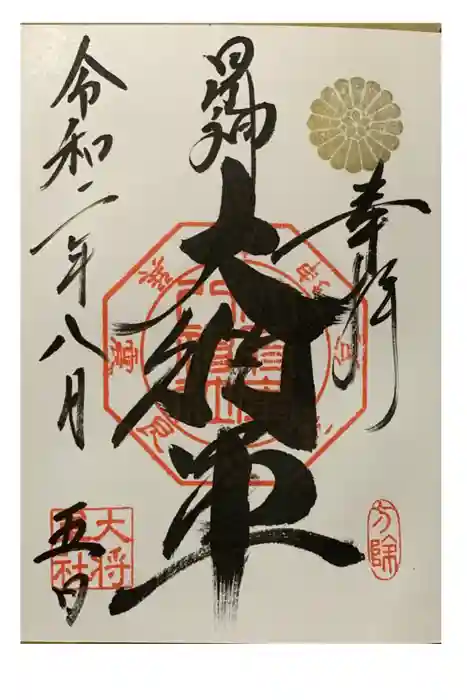 奉拝
方除
星神
大将軍
令和二年八月五日
大将
社
艮